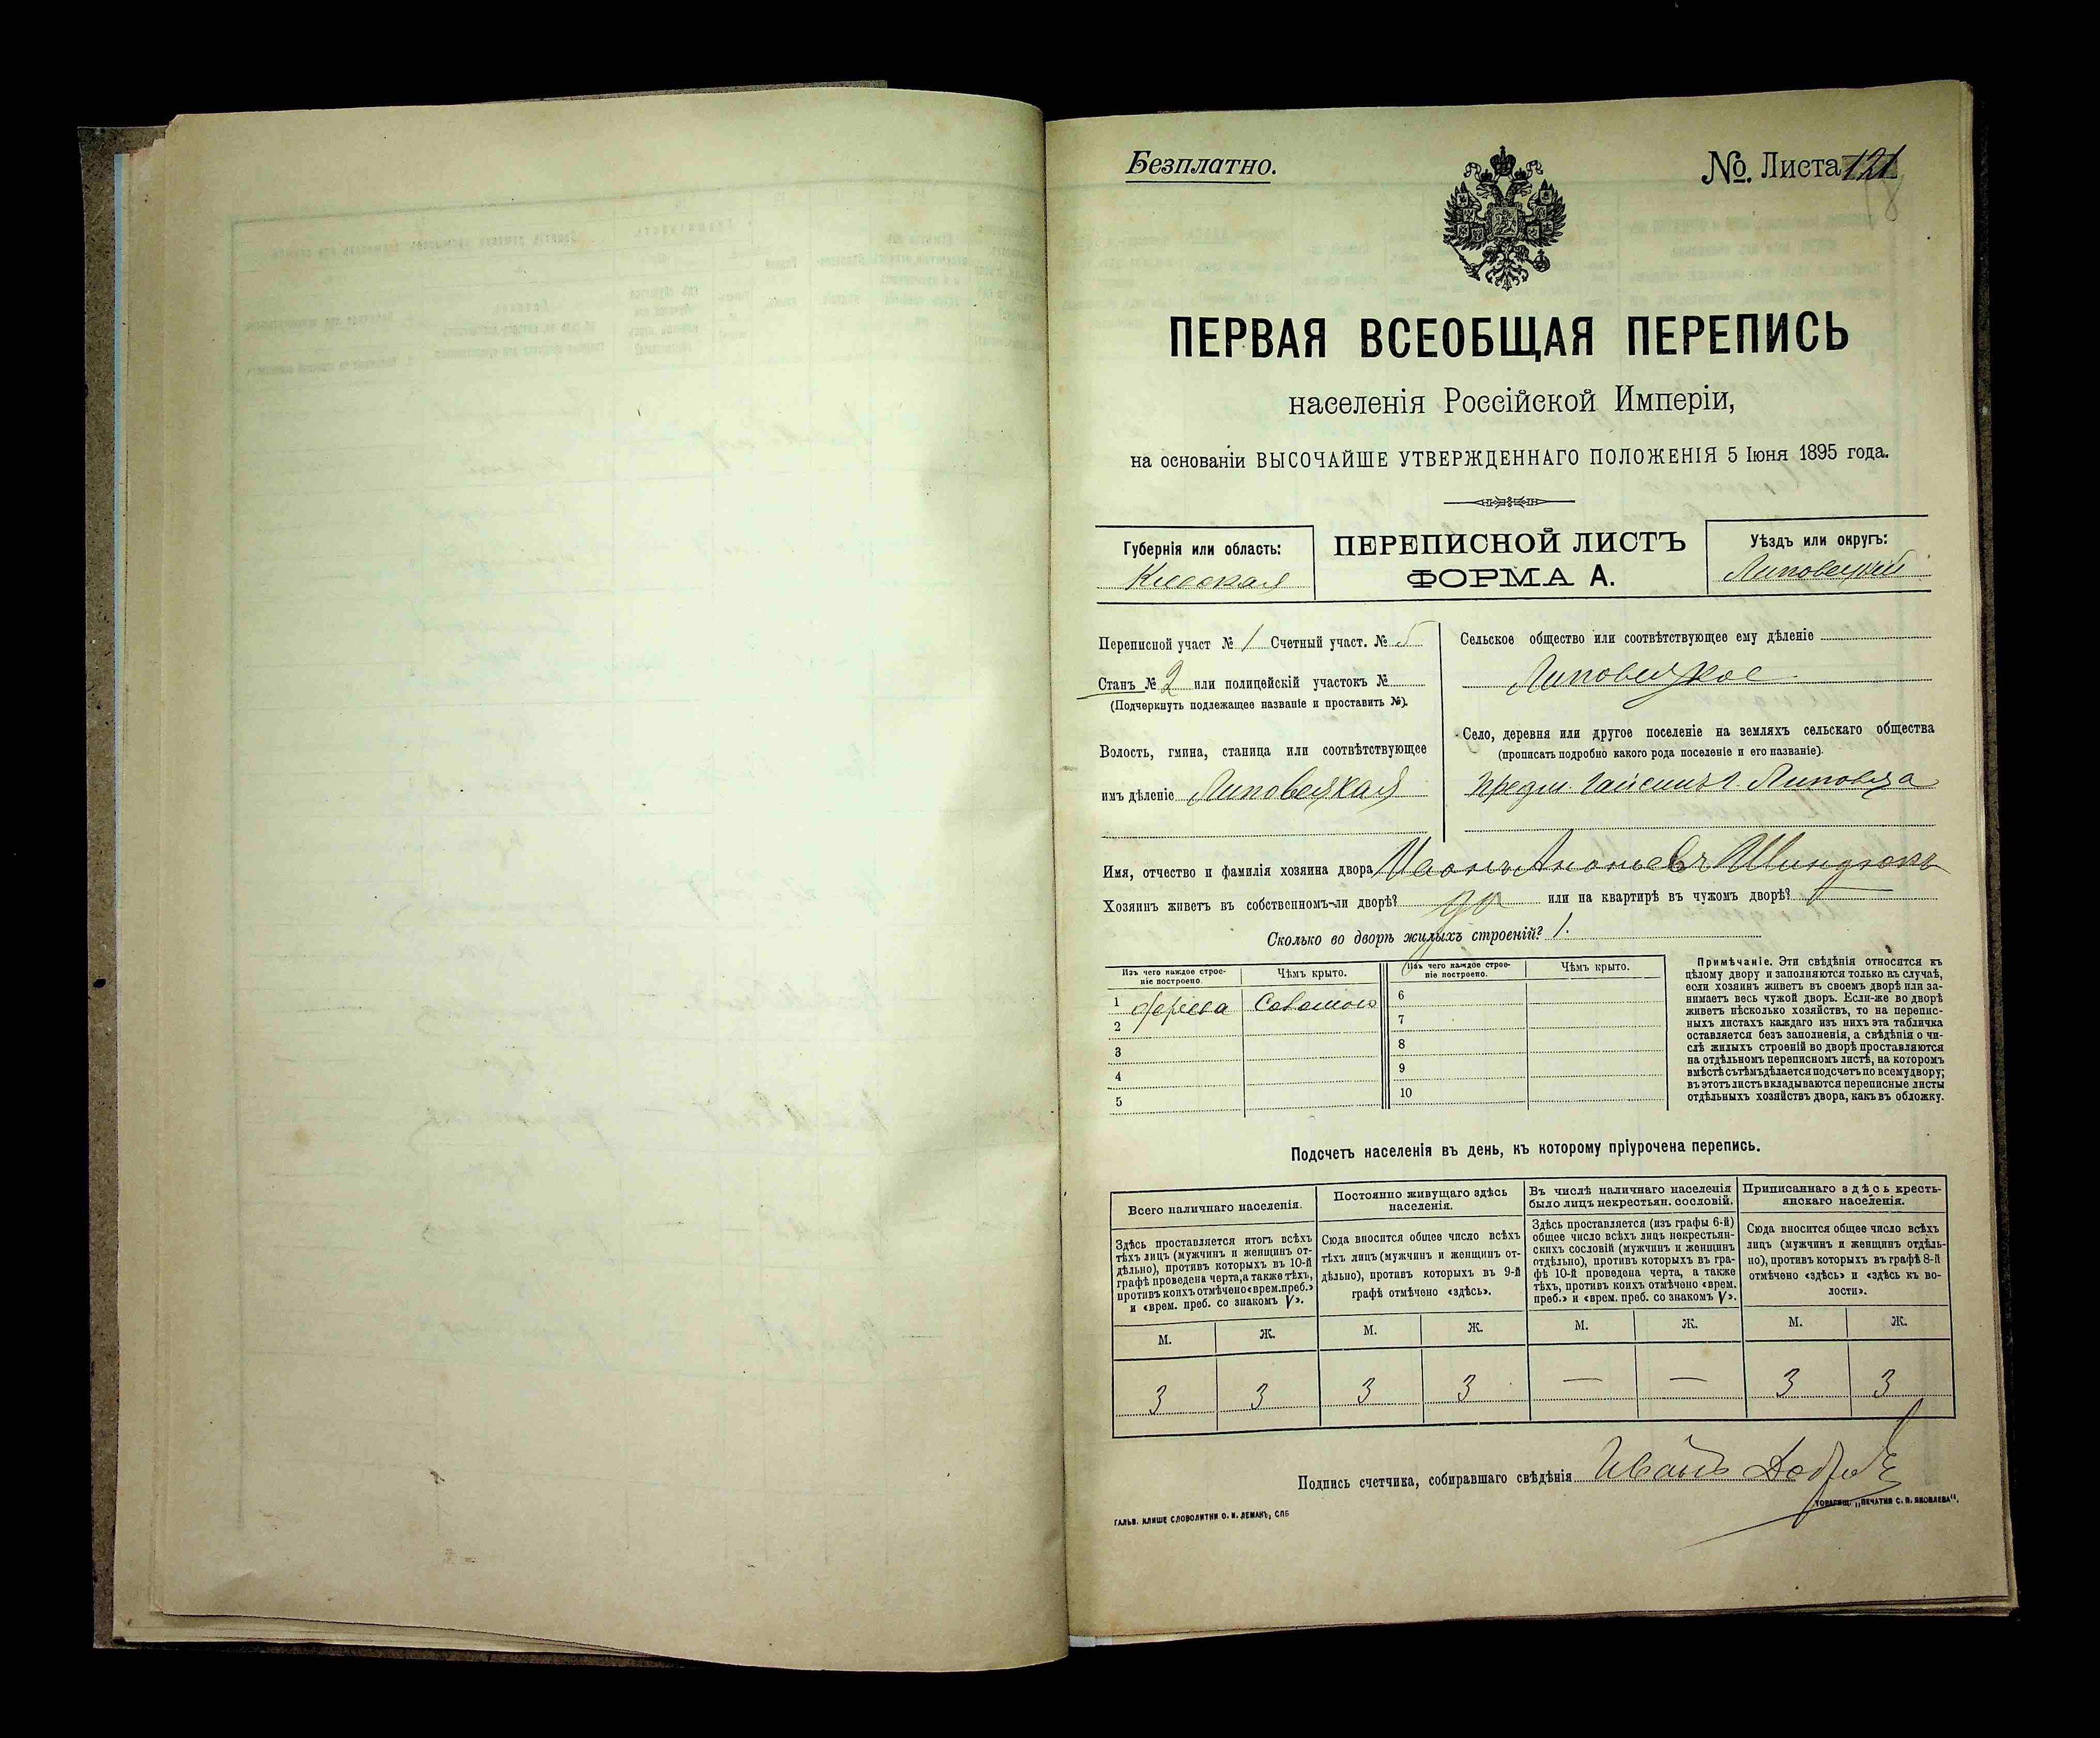 Безплатно.
№. Листа 121
ПЕРВАЯ ВСЕОБЩАЯ ПЕРЕПИСЬ
населенія Россійской Имперіи,
на основаніи ВЫСОЧАЙШЕ УТВЕРЖДЕННАГО ПОЛОЖЕНІЯ 5 Іюня 1895 года.
Губернія или область:
Кіевская
ПЕРЕПИСНОЙ ЛИСТЪ
ФОРМА А.
Уѣздъ или округъ:
Липовецкій
Переписной участ № 1 Счетный участ. № 5
Станъ № 2 или полицейскій участокъ №
(Подчеркнуть подлежащее названіе и проставить №).
Волость, гмина, станица или соотвѣтствующее
имъ дѣленіе Липовецкая
Сельское общество или соотвѣтствующее ему дѣленіе
Липовецкое
Село, деревня или другое поселеніе на земляхъ сельскаго общества
(прописать подробно какого рода поселеніе и его названіе).
предм. Гайсинъ г. Липовца
Имя, отчество и фамилія хозяина двора Иванъ Ананьевъ Шиндюкъ
Хозяинъ живетъ въ собственномъ-ли дворѣ? да или на квартирѣ въ чужомъ дворѣ?
Сколько во дворѣ жилыхъ строеній? 1.
Изъ чего каждое строе-
ніе построено.
Чѣмъ крыто.
Изъ чего каждое строе-
ніе построено.
Чѣмъ крыто.
1 дерева Соломою
2
3
4
5
6
7
8
9
10
Примѣчаніе. Эти свѣдѣнія относятся къ
цѣлому двору и заполняются только въ случаѣ,
если хозяинъ живетъ въ своемъ дворѣ или за-
нимаетъ весь чужой дворъ. Если-же во дворѣ
живетъ нѣсколько хозяйствъ, то на перепис-
ныхъ листахъ каждаго изъ нихъ эта табличка
оставляется безъ заполненія, а свѣдѣнія о чи-
слѣ жилыхъ строеній во дворѣ проставляются
на отдѣльномъ переписномъ листѣ, на которомъ
вмѣстѣ съ тѣмъ дѣлается подсчетъ по всему двору;
въ этотъ листъ вкладываются переписные листы
отдѣльныхъ хозяйствъ двора, какъ въ обложку.
Подсчетъ населенія въ день, къ которому пріурочена перепись.
Всего наличнаго населенія.
Здѣсь проставляется итогъ всѣхъ
тѣхъ лицъ (мужчинъ и женщинъ от-
дѣльно), противъ которыхъ въ 10-й
графѣ проведена черта, а также тѣхъ,
противъ коихъ отмѣчено «врем. преб.»
и «врем. преб. со знакомъ V».
Постоянно живущаго здѣсь
населенія.
Сюда вносится общее число всѣхъ
тѣхъ лицъ (мужчинъ и женщинъ от-
дѣльно), противъ которыхъ въ 9-й
графѣ отмѣчено «здѣсь».
Въ числѣ наличнаго населенія
было лицъ некрестьян. сословій.
Здѣсь проставляется (изъ графы 6-й)
общее число всѣхъ лицъ некрестьян-
скихъ сословій (мужчинъ и женщинъ
отдѣльно), противъ которыхъ въ гра-
фѣ 10-й проведена черта, а также
тѣхъ, противъ коихъ отмѣчено «врем.
преб.» и «врем. преб. со знакомъ V».
Приписаннаго здѣсь кресть-
янскаго населенія.
Сюда вносится общее число всѣхъ
лицъ (мужчинъ и женщинъ отдѣль-
но), противъ которыхъ въ графѣ 8-й
отмѣчено «здѣсь» и «здѣсь къ во-
лости».
М. Ж. М. Ж. М. Ж. М. Ж.
3 3 3 3 — — 3 3
Подпись счетчика, собиравшаго свѣдѣнія Иванъ
ГАЛЬВ. КЛИШЕ СЛОВОЛИТНИ О. И. ЛЕМАНЪ, СПБ
ТОВАРИЩ. „ПЕЧАТНЯ С. П. ЯКОВЛЕВА“.